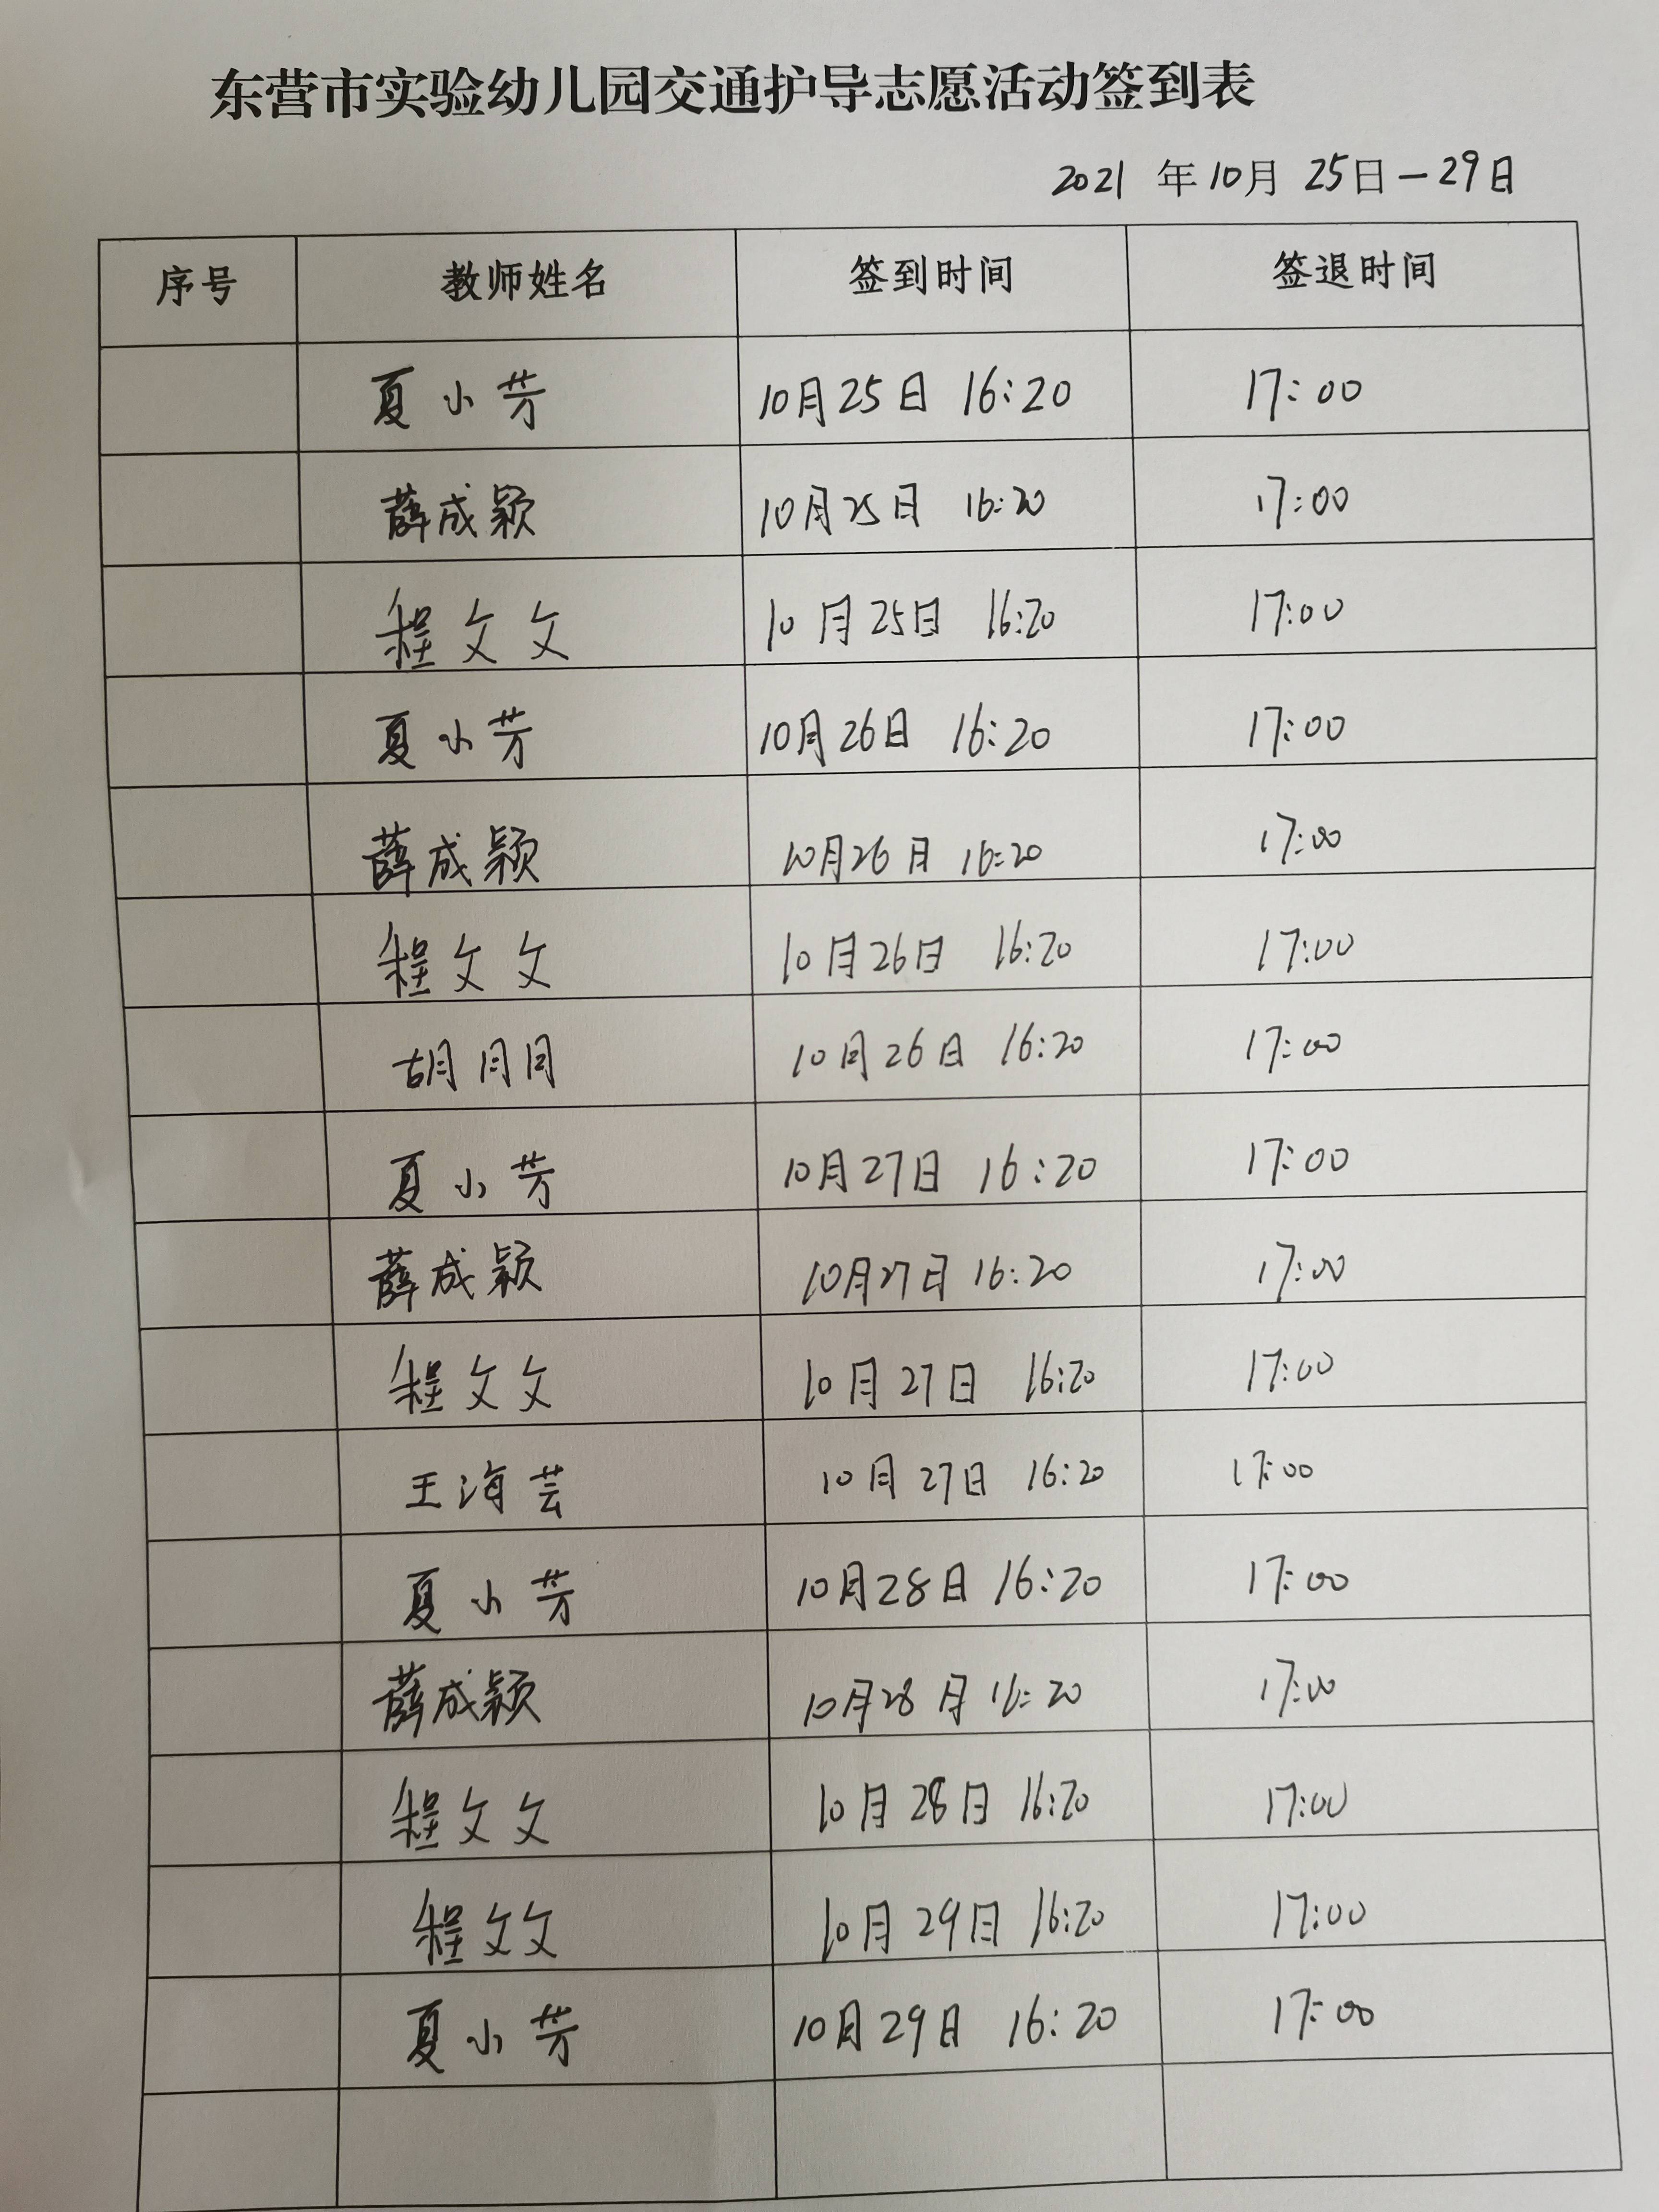 东营市实验幼儿园交通护导志愿活动签到表
2021 年10月 25日-29日
序号 教师姓名 签到时间 签退时间
夏小芳 10月25日 16:20 17:00
薛成颖 10月25日 16:20 17:00
程文文 10月25日 16:20 17:00
夏小芳 10月26日 16:20 17:00
薛成颖 10月26日 16:20 17:00
程文文 10月26日 16:20 17:00
胡月月 10月26日 16:20 17:00
夏小芳 10月27日 16:20 17:00
薛成颖 10月27日 16:20 17:00
程文文 10月27日 16:20 17:00
王海芸 10月27日 16:20 17:00
夏小芳 10月28日 16:20 17:00
薛成颖 10月28月 16:20 17:00
程文文 10月28日 16:20 17:00
程文文 10月29日 16:20 17:00
夏小芳 10月29日 16:20 17:00